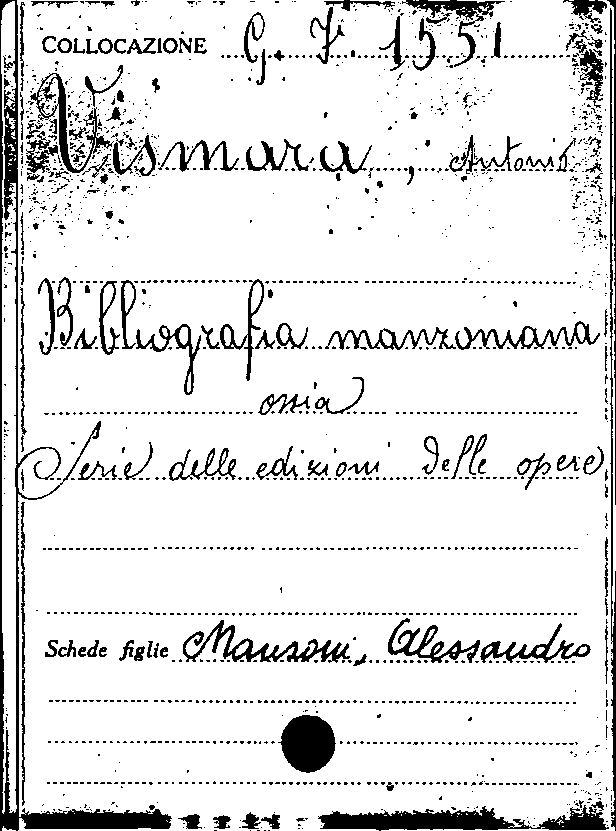 COLLOCAZIONE G. F. 1551
Vismara, Antonio
Bibliografia manzoniana
ossia
Serie delle edizioni delle opere
Schede figlie Manzoni, Alessandro